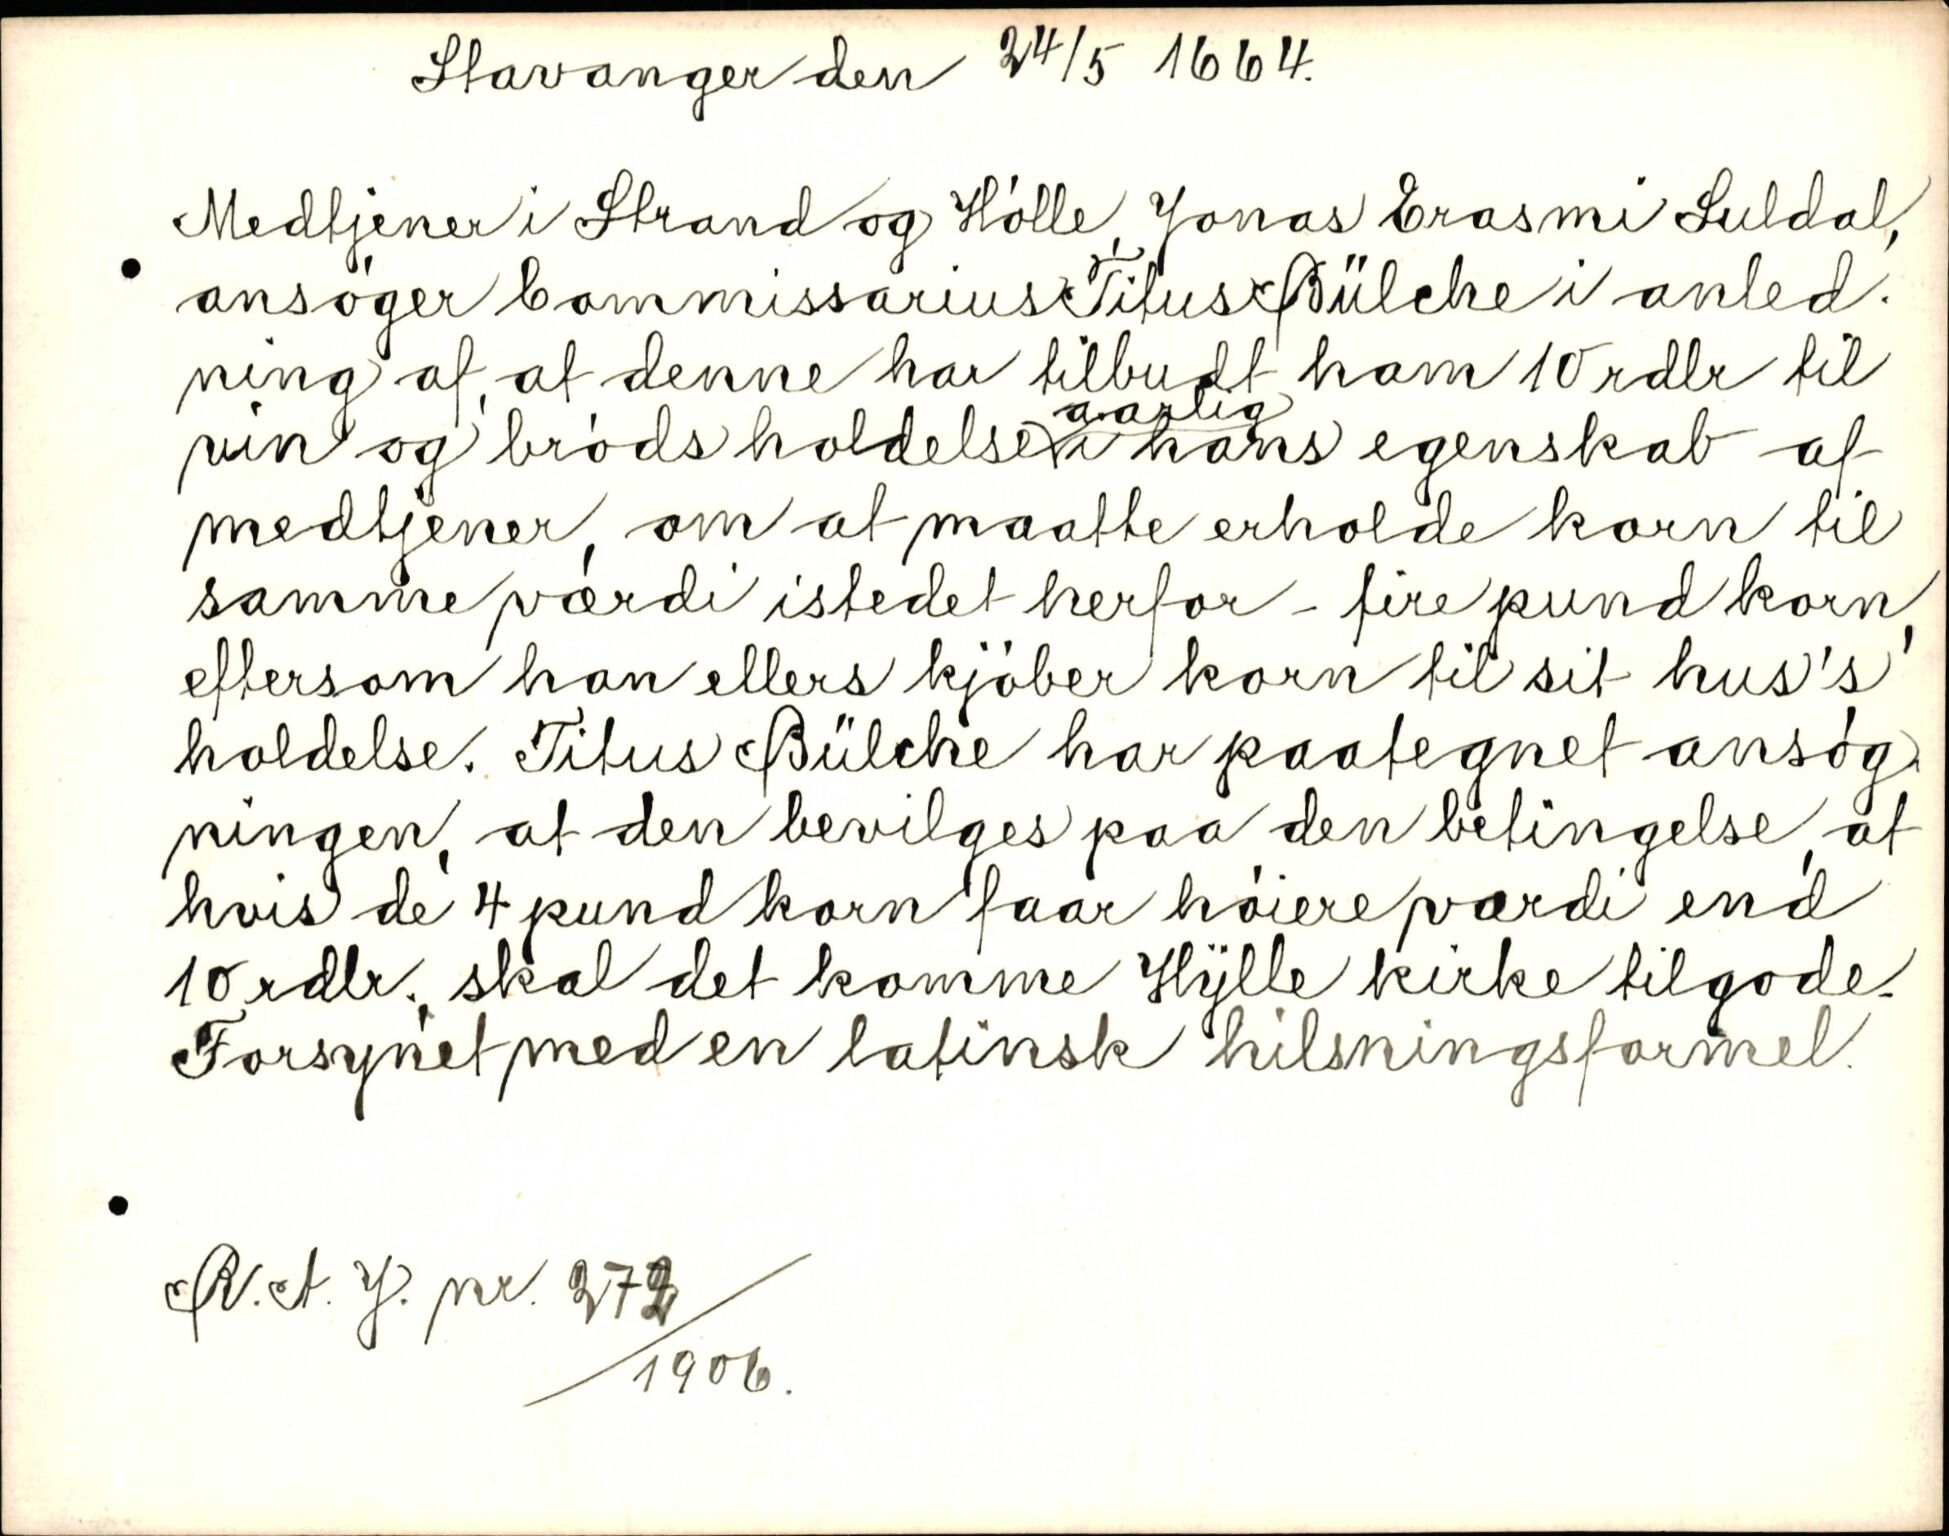 Stavanger den 24/5 1664.
Medtjener i Strand og Hólle, Jonas Erasmi Suldal,
ansóger Commissarius Titus Bülche i anled-
ning af, at denne har tilbudt ham 10 rdlr til
vin og bróds holdelse aarlig i hans egenskab af
medtjener, om at maatte erholde korn til
samme værdi istedet herfor - fire pund korn,
eftersom han ellers kjóber korn til sit hus's
holdelse. Titus Bülche har paategnet ansóg-
ningen, at den bevilges paa den betingelse, at
hvis de 4 pund korn faar hóiere værdi end
10 rdlr., skal det komme Hÿlle kirke tilgode.
Forsynet med en latinsk hilsningsformel.
R. A. Y. nr. 272/1906.